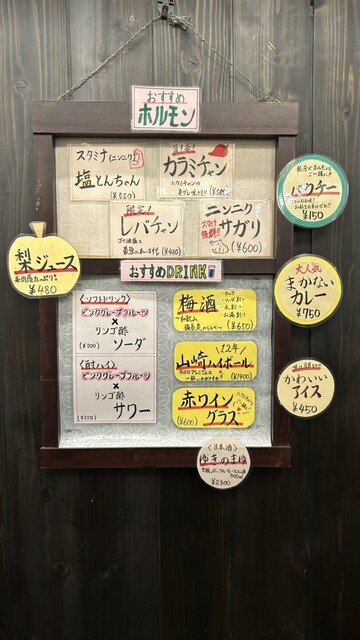 おすすめ
ホルモン
スタミナ(ニンニク)
塩とんちゃん
(¥550)
カラミチャン
レバチャン
(¥480)
ニンニク
サガリ
(¥600)
パクチー
¥150
梨ジュース
¥480
おすすめDRINK
大人気
まかない
カレー
¥750
<ソフトドリンク>
ピンクグレープフルーツ
×
リンゴ酢
(¥500)
ソーダ
<酎ハイ>
ピンクグレープフルーツ
×
リンゴ酢
(¥550)
サワー
梅酒
ロック
ソーダ割り
水割り
お湯割り
(¥650)
山崎12年ハイボール
(¥1900)
赤ワイン
グラス
(¥600)
かわいい
アイス
¥450
<日本酒>
ゆきのまゆ
¥2300